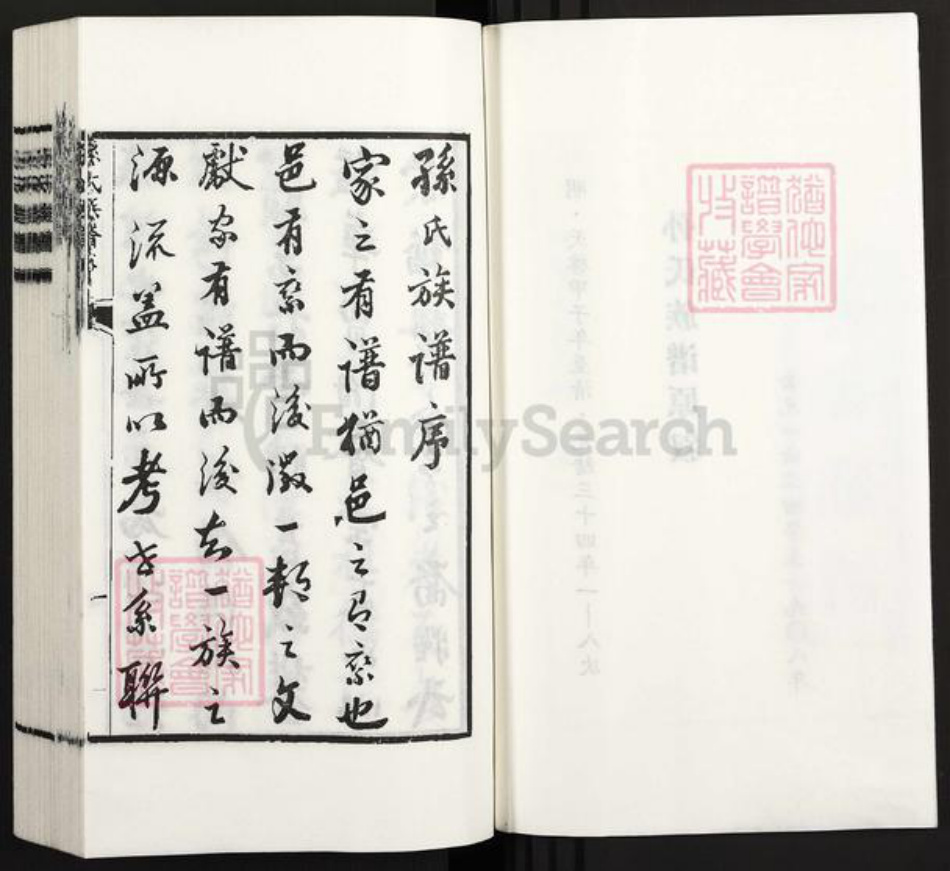 孫氏族譜序
家之有譜猶邑之有乘也
邑有乘而後徵一邦之文
獻家有譜而後知一族之
源流盖所以考世系聯
孫氏族譜序
猶他家譜學會收藏
猶他家譜學會收藏
FamilySearch